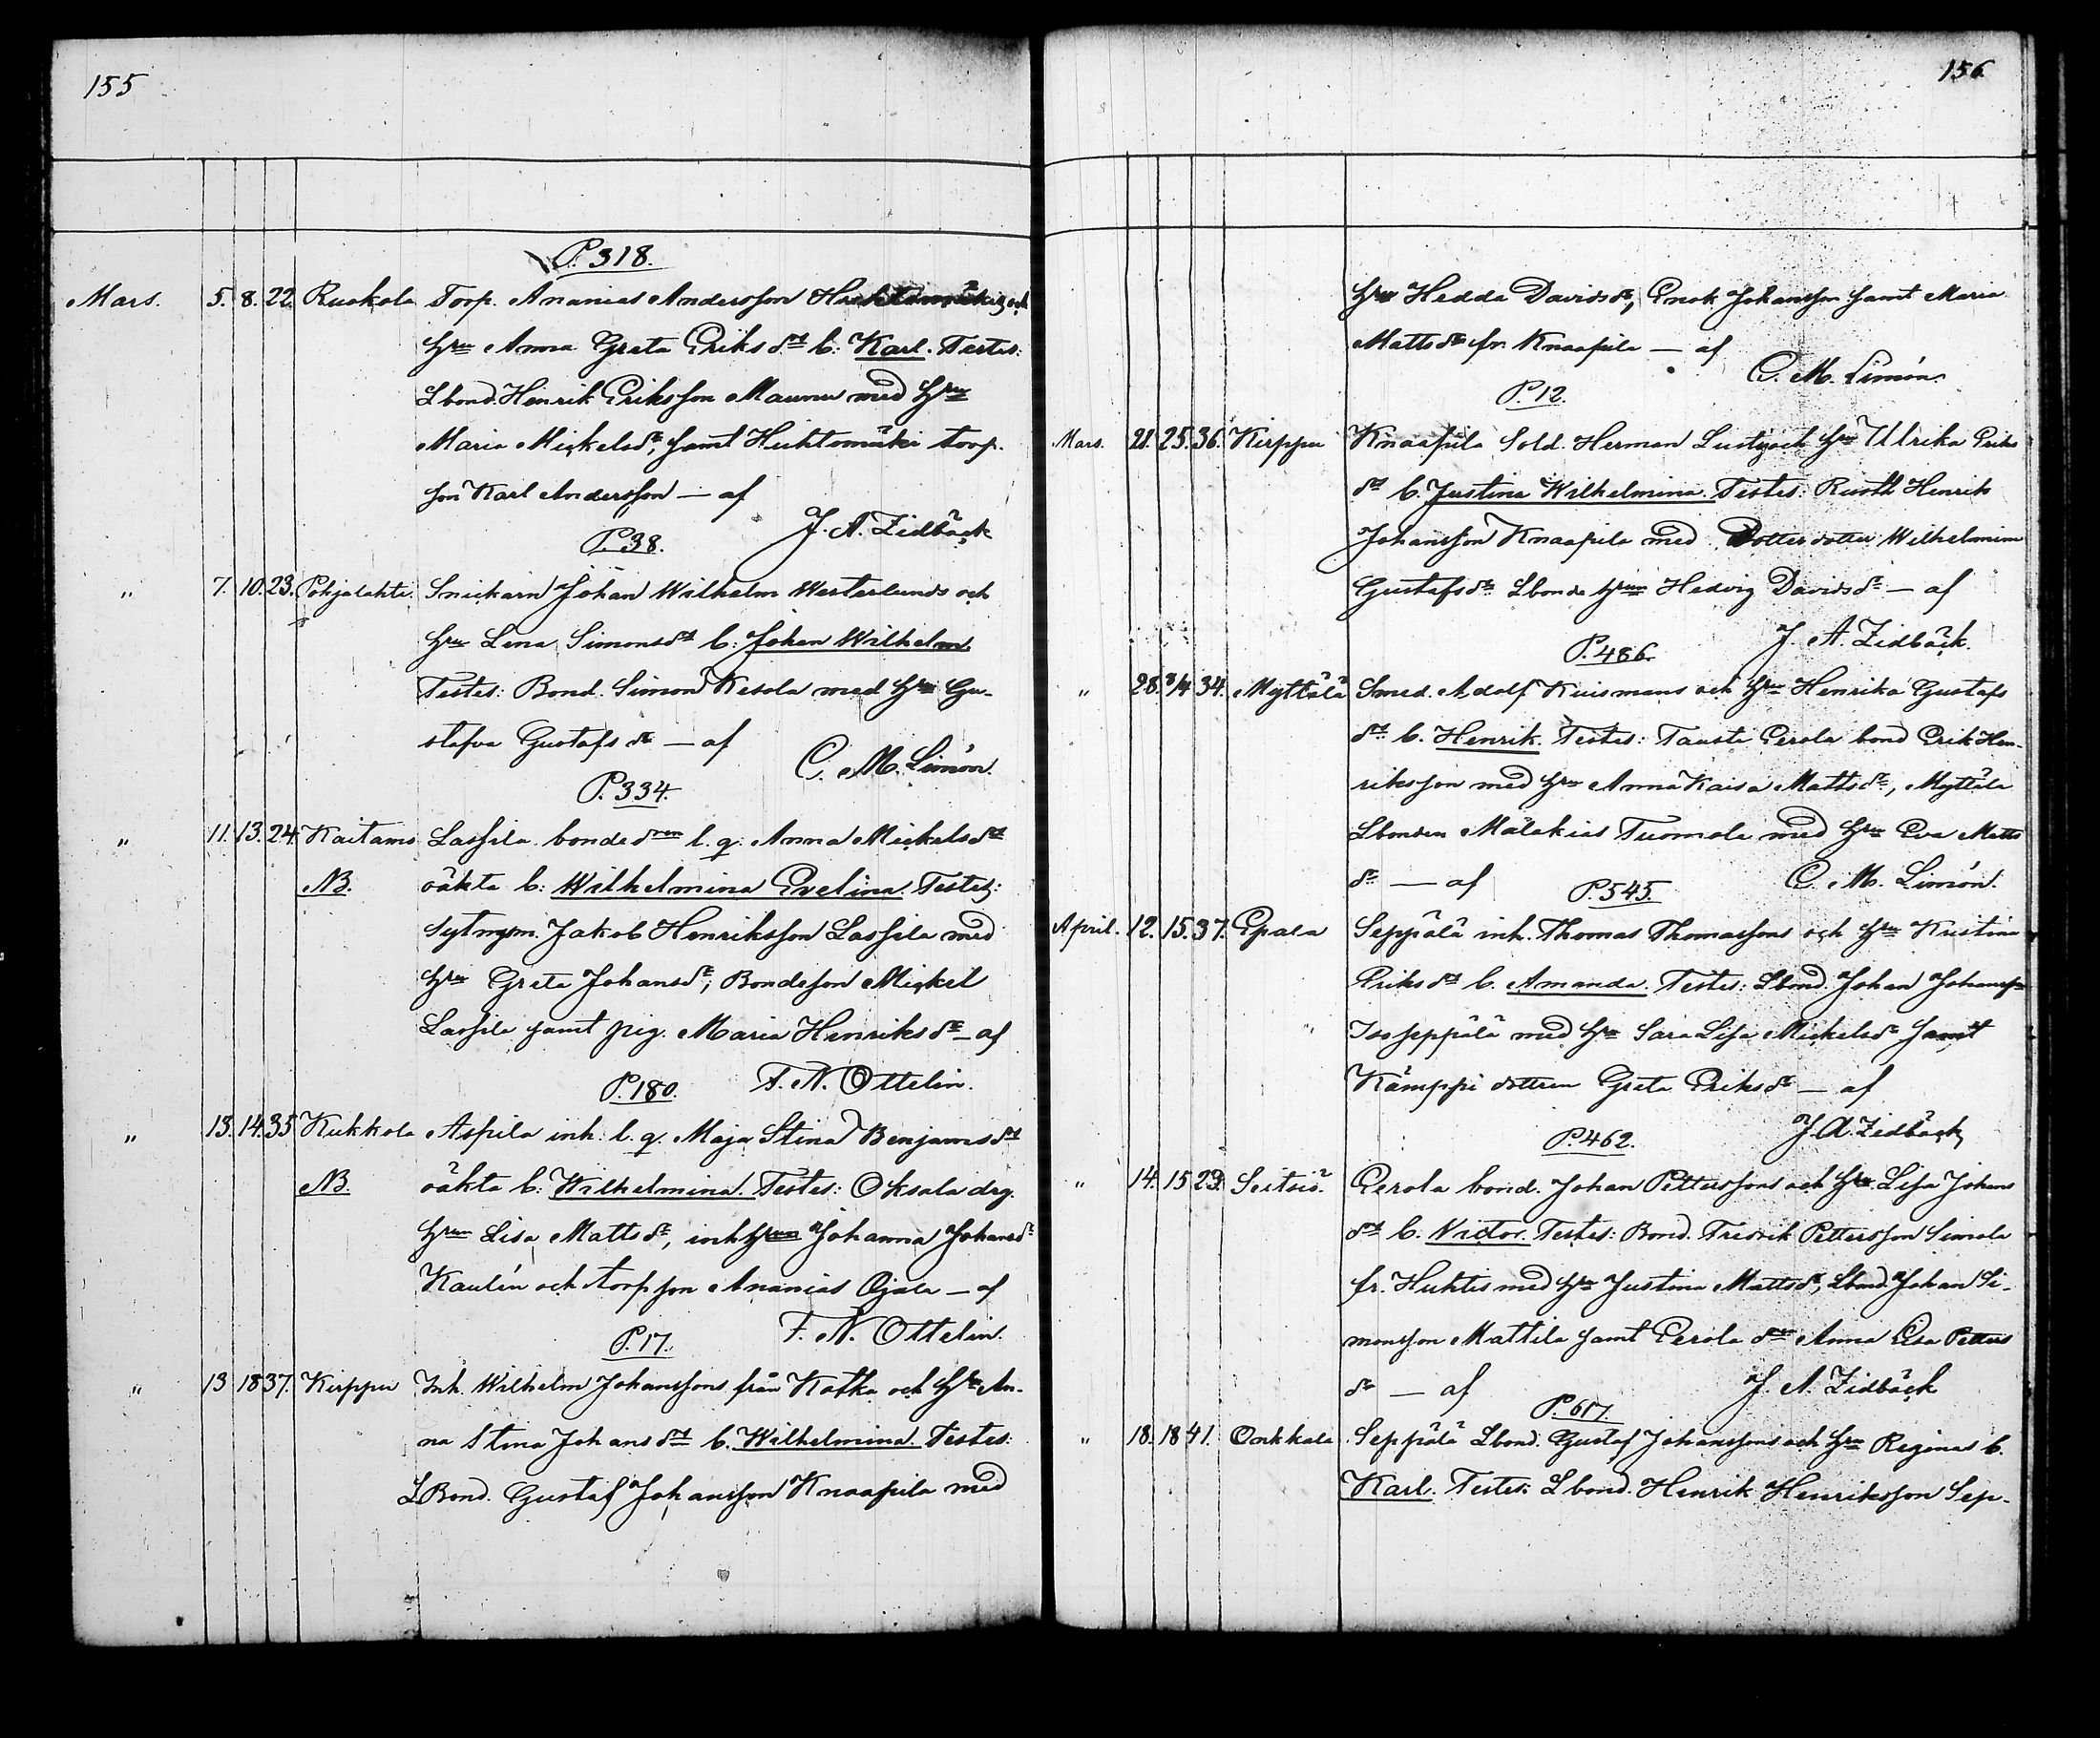 155
P. 318.
Mars. 5. 8. 22 Ruokola Torp. Ananias Andersson och
hru Anna Greta Eriksdrs b: Karl. Testes:
Lbond. Henrik Eriksson Maunu med hru
Maria Mickelsdr, samt Huhtamäki torp.
son Karl Andersson — af
J. A. Zidbäck
P. 38.
" 7. 10. 23. Pohjalahti. Snickarn Johan Wilhelm Westerlunds och
hru Lena Simonsdrs b: Johan Wilhelm
Testes: Bond. Simon Kesola med hru Gu-
stafva Gustafsdr — af
C. M. Limón.
P. 334.
" 11. 13. 24. Kaitamo Lassila bonde dren l. q. Anna Mickelsdrs
NB. oäkta b: Wilhelmina Evelina. Testes:
Sytngm. Jakob Henriksson Lassila med
hru Greta Johansdr, Bondeson Mickel
Lassila samt pig. Maria Henriksdr — af
F. N. Ottelin.
P. 180.
" 13. 14. 35 Kukkola Aspila inh. l. q. Maja Stina Benjamsdrs
NB. oäkta b: Wilhelmina. Testes: Oksala drg.
hrun Lisa Mattsdr, inh hrun Johanna Johansdr
Kaulin och torpson Ananias Ojala — af
F. N. Ottelin.
P. 17.
" 13 18 37. Kirppu Inh. Wilhelm Johanssons från Kotka och hru An-
na Stina Johansdrs b. Wilhelmina. Testes:
LBond. Gustaf Johansson Knaapila med
156
hru Hedda Davidsdr, Enok Johansson samt Maria
Mattsdr fr. Knaapila — af
C. M. Limón.
P. 12.
Mars. 21. 25. 36. Kirppu Knaapila Sold. Herman Lustig och hru Ulrika Eriks
drs b. Justina Wilhelmina. Testes: Rusth Henrik
Johansson Knaapila med Dotterdotter Wilhelmina
Gustafsdr Lbonde hrun Hedvig Davidsdr — af
J. A. Zidbäck.
P. 486.
" 28. 3/4 34. Myttälä Smed. Adolf Kuismans och hru Henrika Gustafs
drs b. Henrik. Testes: Tausti Perola bond Erik Hen-
riksson med hru Anna Kaisa Mattsdr, Myttälä
Lbonden Malakias Tuomola med hru Eva Matts
dr — af C. M. Limón.
P. 545.
April. 12. 15. 37. Epala Seppälä inh. Thomas Thomassons och hru Kristina
Eriksdrs b. Amanda. Testes: Lbond. Johan Johansson
Isoseppälä med hru Sara Lisa Mickelsdr samt
Kämppi dottren Greta Eriksdr — af
J. A. Zidbäck
P. 462.
" 14. 15 29. Seitsiö. Perola bond. Johan Petterssons och hru Lisa Johans
drs b. Victor. Testes: Bond. Fredrik Pettersson Simola
fr. Huhtis med hru Justina Mattsdr, Lbond. Johan Si-
monsson Mattila samt Perola dren Anna Lisa Petters
dr — af J. A. Zidbäck
P. 617.
" 18. 18 41. Onkkala Seppälä Lbond. Gustaf Johanssons och hru Reginas b.
Karl. Testes: Lbond. Henrik Henriksson Sep-